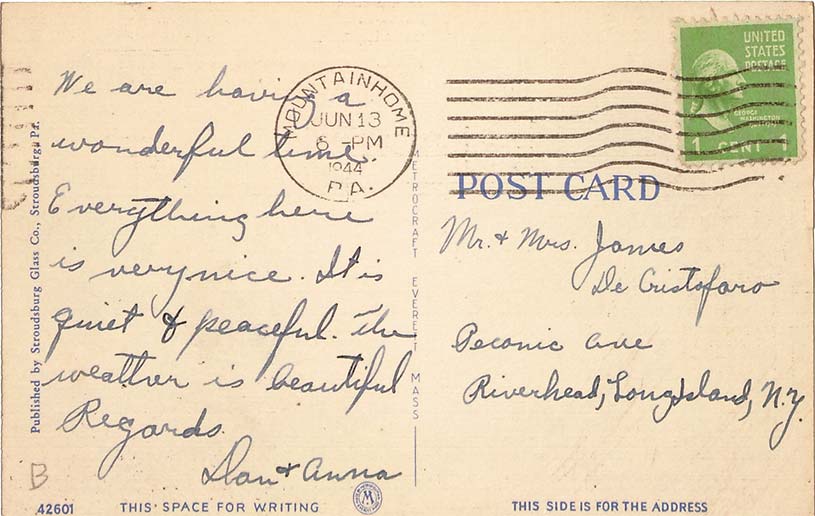 We are having a
wonderful time.
Everything here
is very nice. It is
quiet & peaceful. The
weather is beautiful
Regards.
Dan & Anna
Published by Stroudsburg Glass Co., Stroudsburg, Pa.
B
42601
THIS SPACE FOR WRITING
W
MOUNTAINHOME
JUN 13
6 - PM
1944
PA.
METROCRAFT EVERETT MASS
UNITED
STATES
POSTAGE
GEORGE
WASHINGTON
1 CENT 1
POST CARD
Mr. & Mrs. James
De Cristofaro
Peconic Ave
Riverhead, Long Island, N.Y.
THIS SIDE IS FOR THE ADDRESS